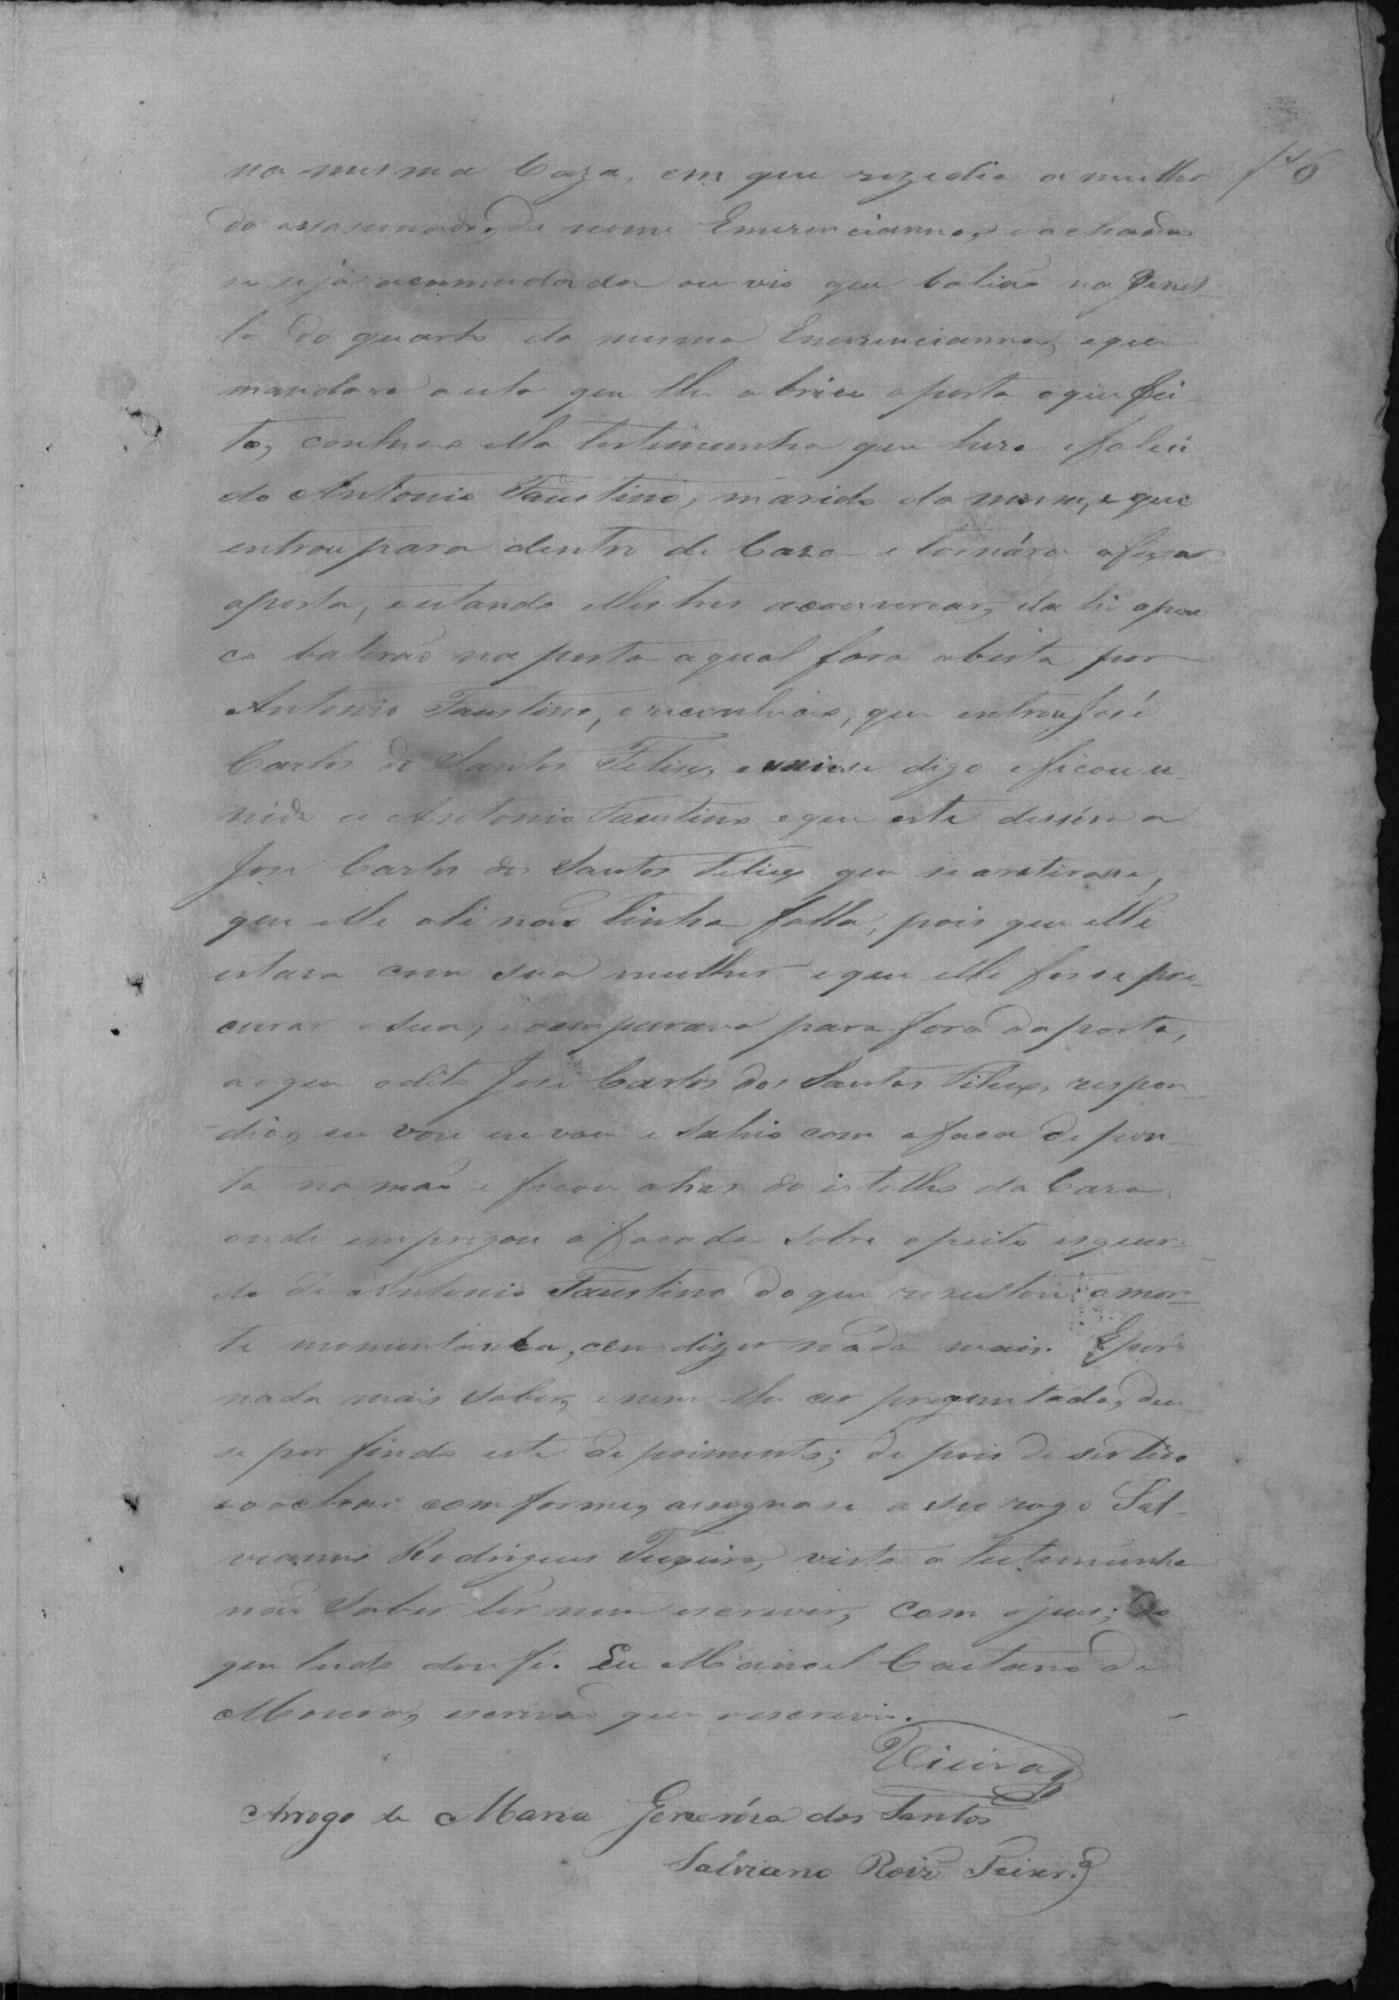 na mesma Caza, em que rezedia a mulher
do assassinado, de nome Emerencianna, e achando
se já acommodada ouvio que batião na Janel-
la do quarto da mesma Emerencianna, e que
mandara a esta que lhe abrice a porta o que fei-
to, conheceo ella testimunha que hera o faleci
do Antonio Faustino, marido da mesma, e que
entrou para dentro de Caza e tornára a fixar
a porta, e estando elles tres a convercar, da hi a pou
co baterão na porta a qual fora aberta por
Antonio Faustino, e reconheceo, que entrou José
Carlos dos Santos Felix, e unio-se digo e ficou u-
nido a Antonio Faustino e que este dissera a
José Carlos dos Santos Felix que se aretirasse,
que elle ali não tinha falla, pois que elle
estava com sua mulher e que elle fosse pro-
curar a sua, e rempurava para fora da porta,
ao que o dito José Carlos dos Santos Felix, respon-
dio, eu vou eu vou e sahio com a faca de pon-
ta na mão e ficou atras do istelho da Caza
onde empregou a facada sobre o peito esquer-
do de Antonio Faustino do que rezultou a mor-
te momentanea, cem dizer nada mais. E por
nada mais saber, e nem lhe cer preguntado, deu
se por findo este depoimento; depois de ser lido
e o achar comforme, assignase a seo rogo Sal-
vianno Rodrigues Teixeira, visto a testemunha
não saber ler nem escrever, com o juis; do
que tudo dou fé. Eu Manoel Caetano de
Moura, escrivão que o escrevi.
Vieira
Arrogo de Maria Generóza dos Santos
Salviano Roiz Teixr.a